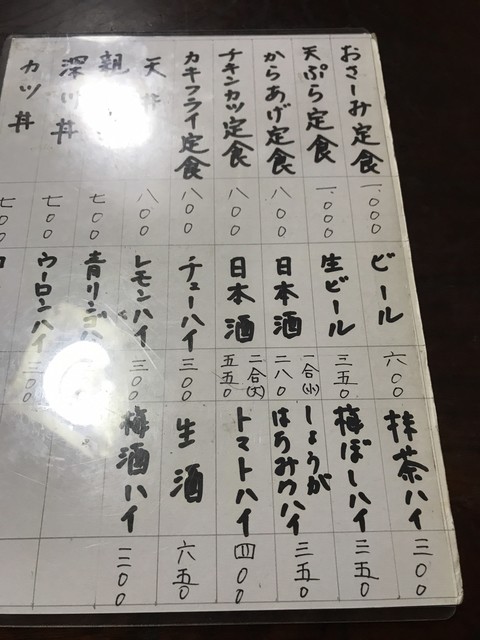 おさしみ定食 一、〇〇〇
天ぷら定食 一、〇〇〇
からあげ定食 八〇〇
チキンカツ定食 八〇〇
カキフライ定食 八〇〇
天丼 八〇〇
親 七〇〇
深川丼 七〇〇
カツ丼 七〇〇
ビール 六〇〇
生ビール 三五〇
日本酒 一合(小) 二八〇
日本酒 二合(大) 五五〇
チューハイ 三〇〇
レモンハイ 三〇〇
青リンゴハ
ウーロンハイ 三〇〇
抹茶ハイ 三〇〇
梅ぼしハイ 三五〇
しょうがはちみつハイ 三五〇
トマトハイ 四〇〇
生酒 六五〇
梅酒ハイ 三〇〇